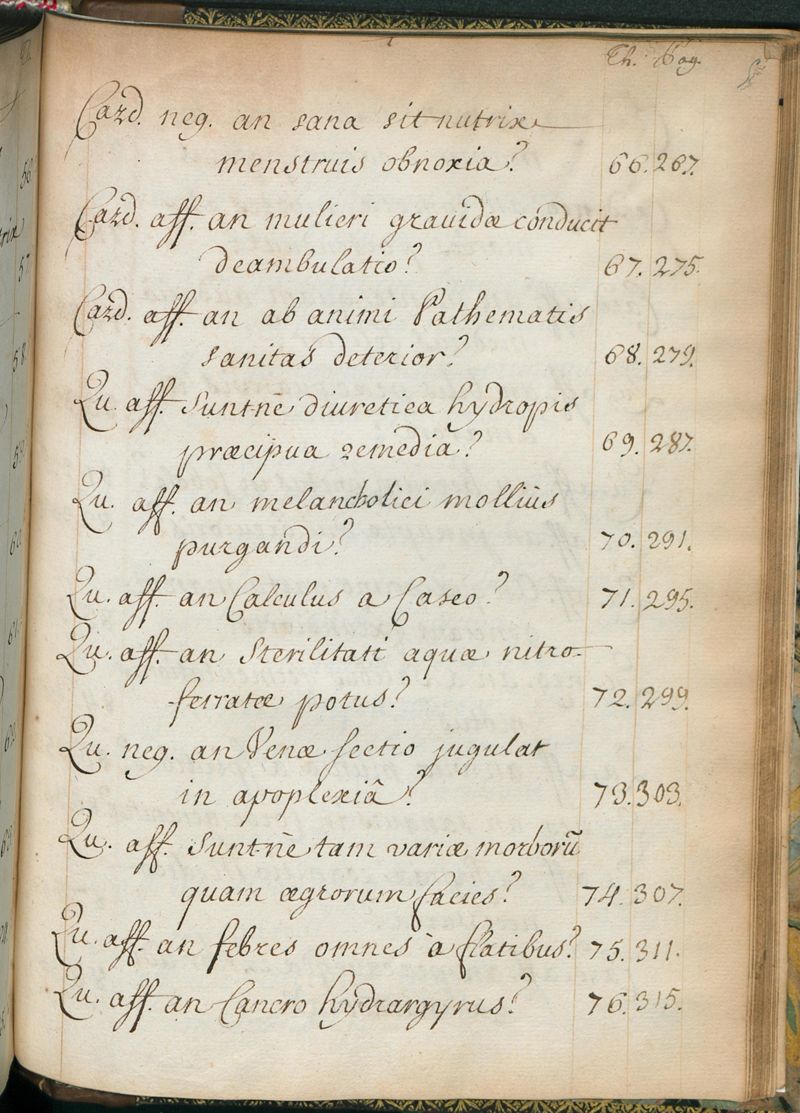 Th. Pag.
Card. neg. an sana sit nutrix
menstruis obnoxia? 66. 267.
Card. aff. an mulieri gravidæ conducit
deambulatio? 67. 275.
Card. aff. an ab animi Pathematis
sanitas deterior? 68. 279.
Qu. aff. suntnē diuretica hydropis
præcipua remedia? 69. 287.
Qu. aff. an melancholici molliùs
purgandi? 70. 291.
Qu. aff. an Calculus a Caseo? 71. 295.
Qu. aff. an Sterilitati aquæ nitro-
ferratæ potus? 72. 299.
Qu. neg. an Venæ sectio jugulat
in apoplexiâ? 73. 303.
Qu. aff. suntnē tam variæ morborū
quam ægrorum facies? 74. 307.
Qu. aff. an febres omnes à flatibus? 75. 311.
Qu. aff. an Cancro hydrargyrus? 76. 315.
56
57
58
59
60